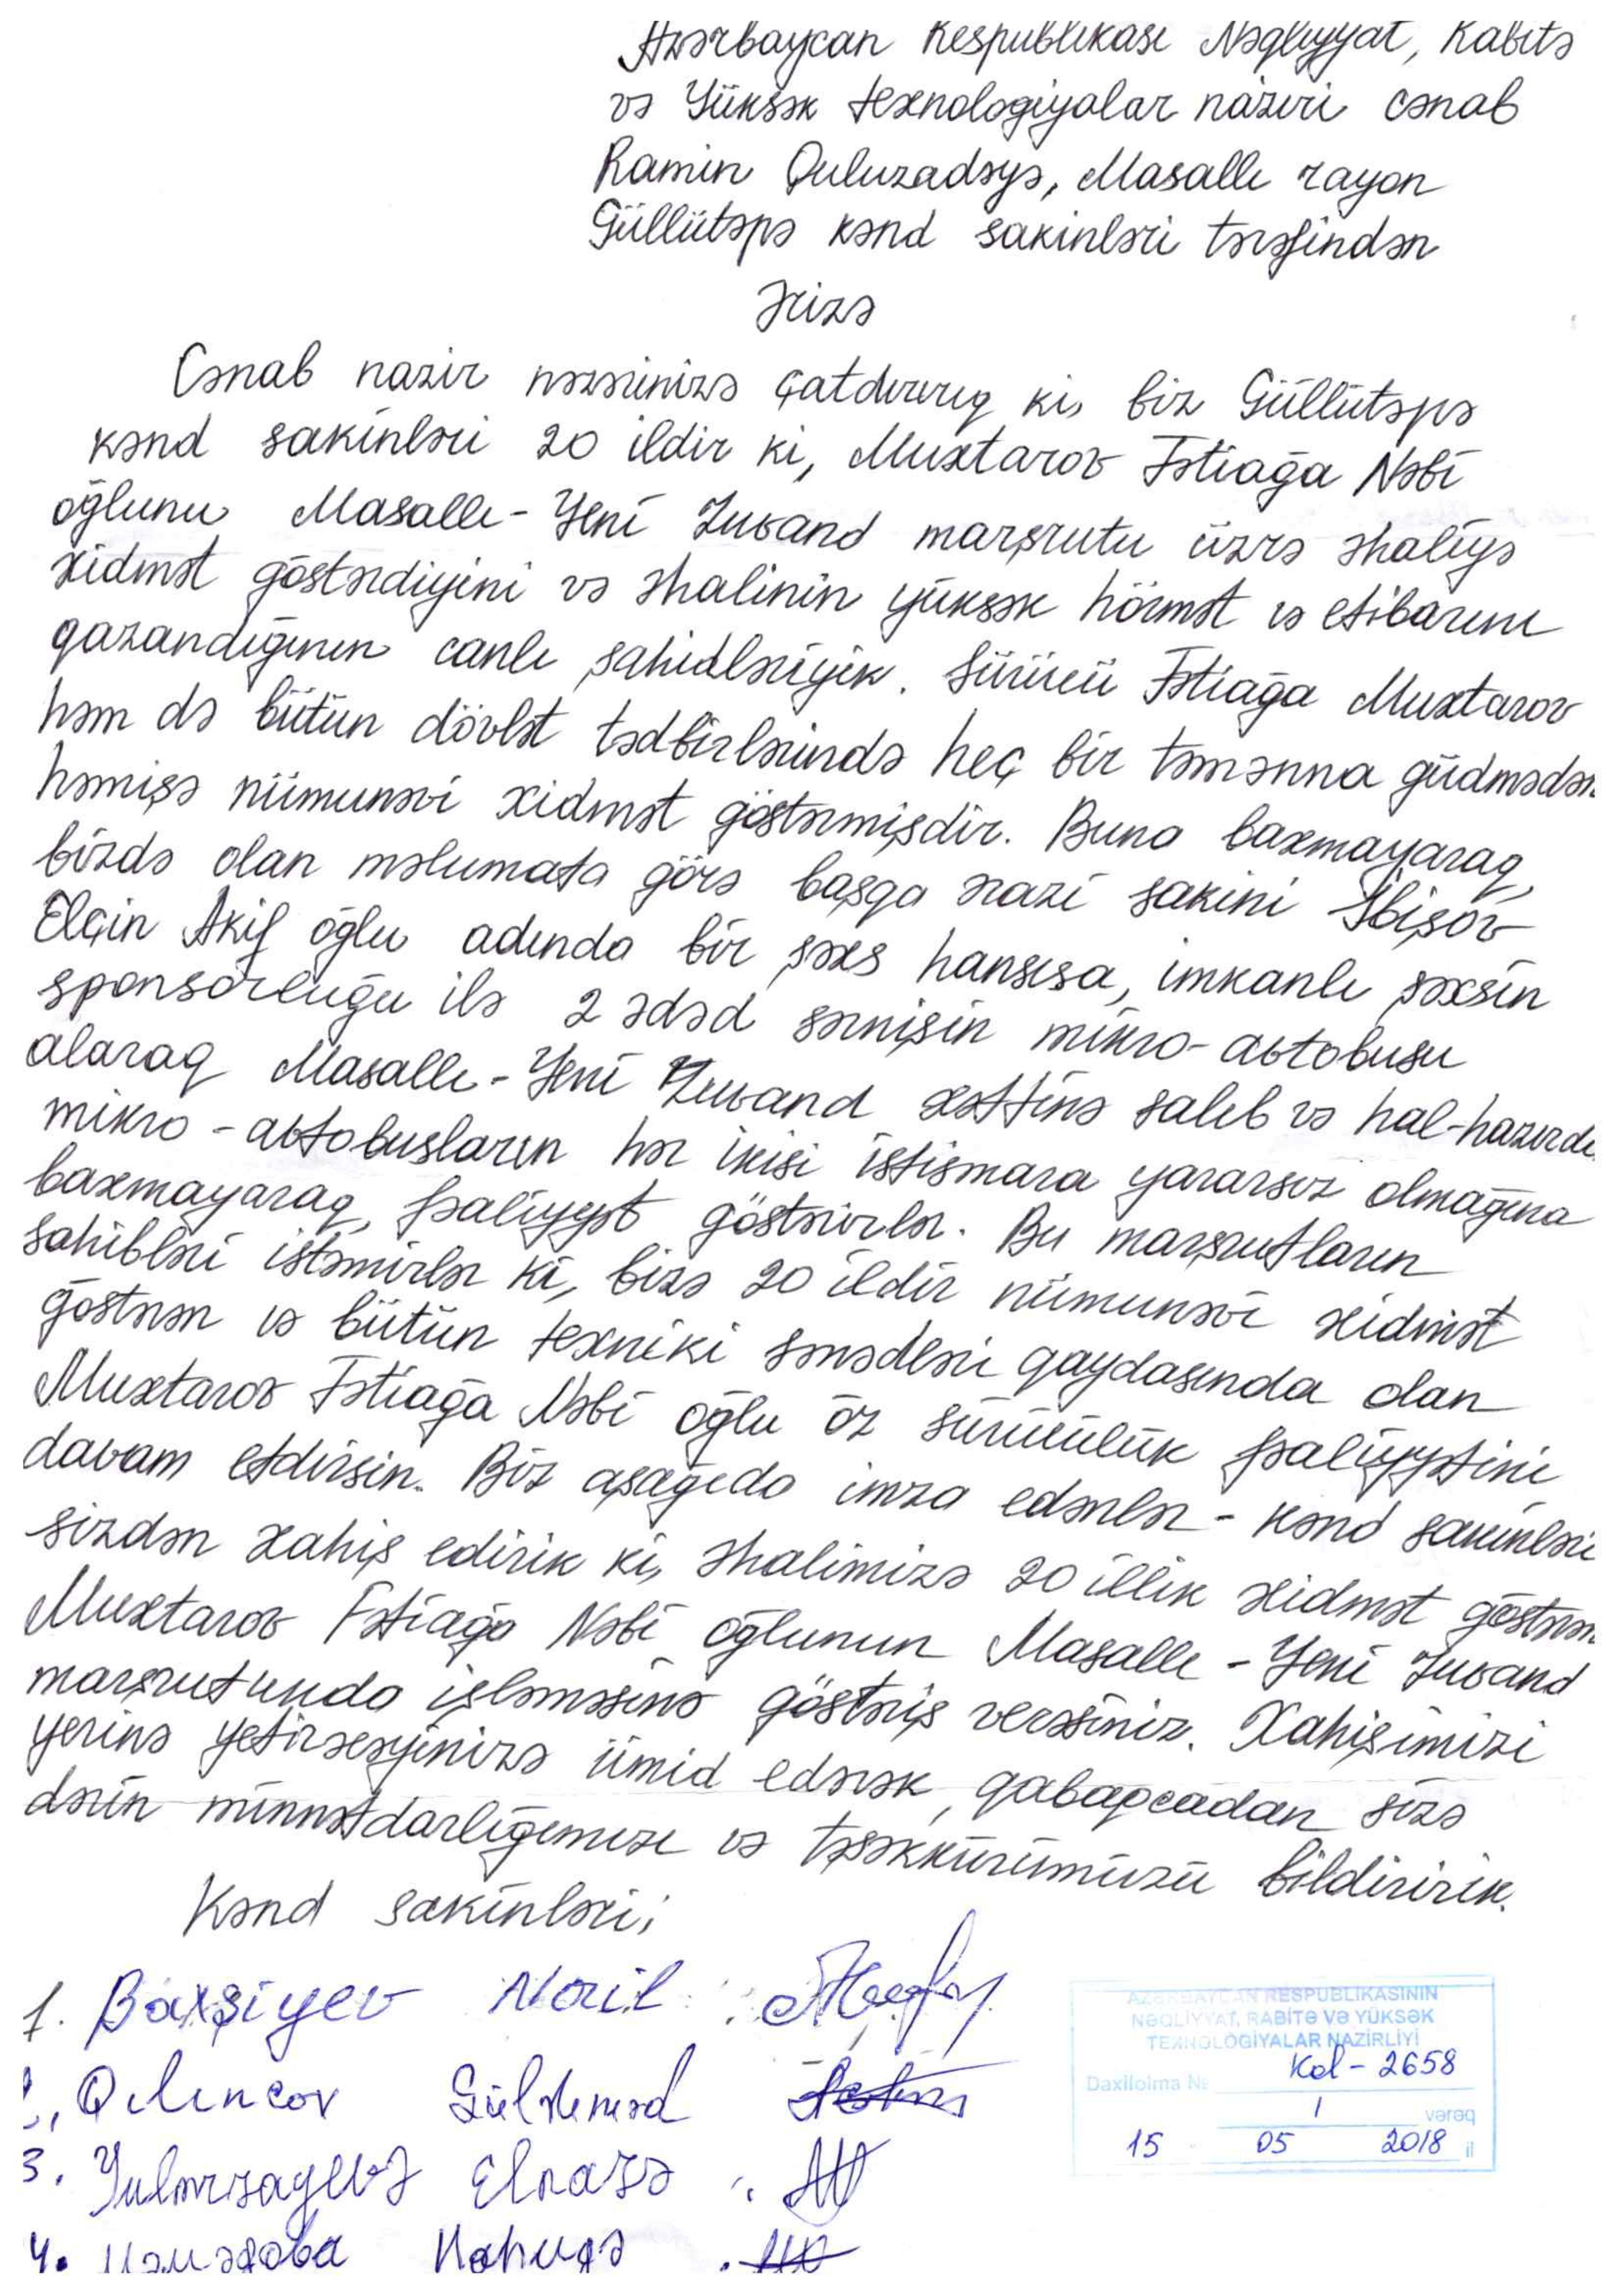 Azərbaycan Respublikası Nəqliyyat, Rabitə
və Yüksək texnologiyalar naziri cənab
Ramin Quluzadəyə, Masallı rayon
Güllütəpə kənd sakinləri tərəfindən
Ərizə
Cənab nazir nəzərinizə çatdırırıq ki, biz Güllütəpə
kənd sakinləri 20 ildir ki, Muxtarov Fətiağa Nəbi
oğlunu Masallı-Yeni Zuvand marşrutu üzrə əhaliyə
xidmət göstərdiyini və əhalinin yüksək hörmət və etibarını
qazandığının canlı şahidləriyik. Sürücü Fətiağa Muxtarov
həm də bütün dövlət tədbirlərində heç bir təmənna güdmədən
həmişə nümunəvi xidmət göstərmişdir. Buna baxmayaraq,
bizdə olan məlumata görə başqa ərazi sakini İbişov
Elçin Akif oğlu adında bir şəxs hansısa, imkanlı şəxsin
sponsorluğu ilə 2 ədəd sərnişin mikro-avtobusu
alaraq Masallı-Yeni Zuvand xəttinə salıb və hal-hazırda
mikro-avtobusların hər ikisi istismara yararsız olmağına
baxmayaraq, fəaliyyət göstərirlər. Bu marşrutların
sahibləri istəmirlər ki, bizə 20 ildir nümunəvi xidmət
göstərən və bütün texniki sənədləri qaydasında olan
Muxtarov Fətiağa Nəbi oğlu öz sürücülük fəaliyyətini
davam etdirsin. Biz aşağıda imza edənlər - kənd sakinləri
sizdən xahiş edirik ki, əhalimizə 20 illik xidmət göstərən
Muxtarov Fətiağa Nəbi oğlunun Masallı-Yeni Zuvand
marşrutunda işləməsinə göstəriş verəsiniz. Xahişimizi
yerinə yetirəcəyinizə ümid edərək, qabaqcadan sizə
dərin minnətdarlığımızı və təşəkkürümüzü bildiririk.
Kənd sakinləri;
1. Baxşiyev
2. Qılıncov
3. Elnarə
4.
AZƏRBAYCAN RESPUBLİKASININ
NƏQLİYYAT, RABİTƏ VƏ YÜKSƏK
TEXNOLOGİYALAR NAZİRLİYİ
Daxilolma № Kol-2658
1 vərəq
15 05 2018 il